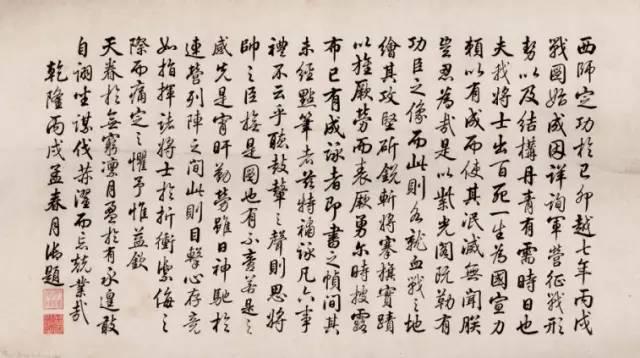 西師定功於己卯越七年丙戌
戰圖始成因詳詢軍營征戰形
勢以及結構丹青有需時日也
夫我將士出百死一生為國宣力
賴以有成而使其泯滅無聞朕
豈忍為哉是以紫光閣既勒有
功臣之像而此則各就血戰之地
繪其攻堅斫銳斬將搴旗實蹟
以旌厥勞而表厥勇爾時披露
布已有成詠者即書之幀間其
未經點筆者茲特補詠凡六事
禮不云乎聽鼓鼙之聲則思將
帥之臣撫是圖也有不是之
感先是宵旰勤勞雖日神馳於
連營列陣之間此則目擊心存竟
如指揮諸將士於折衝禦侮之
際而痛定之懼予惟益欽
天眷於無窮凜月盈於有永遑敢
自詡坐謀伐濯而忘兢業哉
乾隆丙戌孟春月御題